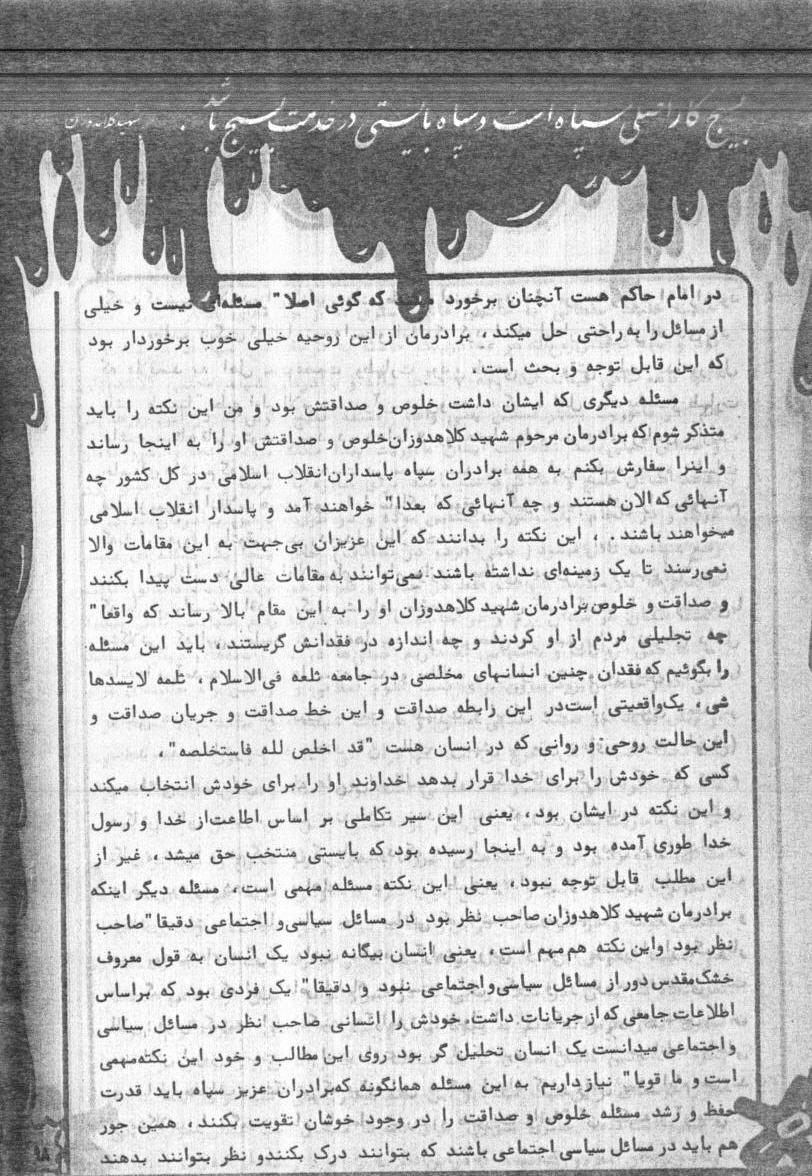 بسیج کار اصلی سپاه است و سپاه بایستی در خدمت بسیج باشد . شهید کلاهدوزان
در امام حاکم هست آنچنان برخورد که گوئی اصلا" مسئله‌ای نیست و خیلی
از مسائل را به راحتی حل میکند ، برادرمان از این روحیه خیلی خوب برخوردار بود
که این قابل توجه و بحث است .
مسئله دیگری که ایشان داشت خلوص و صداقتش بود و من این نکته را باید
متذکر شوم که برادرمان مرحوم شهید کلاهدوزان خلوص و صداقتش او را به اینجا رساند
و اینرا سفارش بکنم به همه برادران سپاه پاسداران انقلاب اسلامی در کل کشور چه
آنهائی که الان هستند و چه آنهائی که بعدا" خواهند آمد و پاسدار انقلاب اسلامی
میخواهند باشند . ، این نکته را بدانند که این عزیزان بی‌جهت به این مقامات والا
نمی‌رسند تا یک زمینه‌ای نداشته باشند نمی‌توانند به مقامات عالی دست پیدا بکنند
و صداقت و خلوص برادرمان شهید کلاهدوزان او را به این مقام بالا رساند که واقعا"
چه تجلیلی مردم از او کردند و چه اندازه در فقدانش گریستند ، باید این مسئله
را بگوئیم که فقدان چنین انسانهای مخلصی در جامعه ثلعه فی‌الاسلام ، ثلمه لایسدها
شی ، یک‌واقعیتی است‌در این رابطه صداقت و این خط صداقت و جریان صداقت و
این حالت روحی و روانی که در انسان هست "قد اخلص لله فاستخلصه" ،
کسی که خودش را برای خدا قرار بدهد خداوند او را برای خودش انتخاب میکند
و این نکته در ایشان بود ، یعنی این سیر تکاملی بر اساس اطاعت‌از خدا و رسول
خدا طوری آمده بود و به اینجا رسیده بود که بایستی منتخب حق میشد ، غیر از
این مطلب قابل توجه نبود ، یعنی این نکته مسئله مهمی است ، مسئله دیگر اینکه
برادرمان شهید کلاهدوزان صاحب نظر بود در مسائل سیاسی و اجتماعی دقیقا" صاحب
نظر بود واین نکته هم مهم است ، یعنی انسان بیگانه نبود یک انسان به قول معروف
خشک‌مقدس دور از مسائل سیاسی و اجتماعی نبود و دقیقا" یک فردی بود که براساس
اطلاعات جامعی که از جریانات داشت خودش را انسانی صاحب انظر در مسائل سیاسی
و اجتماعی میدانست یک انسان تحلیل گر بود روی این مطالب و خود این نکته‌مهمی
است و ما قویا" نیاز داریم به این مسئله همانگونه که‌برادران عزیز سپاه باید قدرت
حفظ و رشد مسئله خلوص و صداقت را در وجود خوشان تقویت بکنند ، همین جور
هم باید در مسائل سیاسی اجتماعی باشند که بتوانند درک بکنندو نظر بتوانند بدهند
۱۸